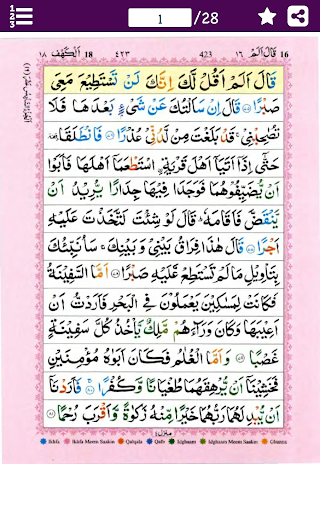 1 /28
١٨ اَلْكَهْف 18 ٤٢٣ 423 قَالَ اَلَمْ ١٦ 16
قَالَ اَلَمْ اَقُلْ لَّكَ اِنَّكَ لَنْ تَسْتَطِيْعَ مَعِيَ
صَبْرًا ﴿٧٥﴾ قَالَ اِنْ سَاَلْتُكَ عَنْ شَيْءٍۭ بَعْدَهَا فَلَا
تُصٰحِبْنِيْ ۚ قَدْ بَلَغْتَ مِنْ لَّدُنِّيْ عُذْرًا ﴿٧٦﴾ فَانْطَلَقَا ۥ
حَتّٰۤى اِذَاۤ اَتَيَاۤ اَهْلَ قَرْيَةِ ِۨاسْتَطْعَمَاۤ اَهْلَهَا فَاَبَوْا
اَنْ يُّضَيِّفُوْهُمَا فَوَجَدَا فِيْهَا جِدَارًا يُّرِيْدُ اَنْ
يَّنْقَضَّ فَاَقَامَهٗ ؕ قَالَ لَوْ شِئْتَ لَتَّخَذْتَ عَلَيْهِ
اَجْرًا ﴿٧٧﴾ قَالَ هٰذَا فِرَاقُ بَيْنِيْ وَبَيْنِكَ ۚ سَاُنَبِّئُكَ
بِتَاْوِيْلِ مَا لَمْ تَسْتَطِعْ عَّلَيْهِ صَبْرًا ﴿٧٨﴾ اَمَّا السَّفِيْنَةُ
فَكَانَتْ لِمَسٰكِيْنَ يَعْمَلُوْنَ فِي الْبَحْرِ فَاَرَدْتُّ اَنْ
اَعِيْبَهَا وَكَانَ وَرَآءَهُمْ مَّلِكٌ يَّاْخُذُ كُلَّ سَفِيْنَةٍ
غَصْبًا ﴿٧٩﴾ وَاَمَّا الْغُلٰمُ فَكَانَ اَبَوٰهُ مُؤْمِنَيْنِ
فَخَشِيْنَاۤ اَنْ يُّرْهِقَهُمَا طُغْيَانًا وَّكُفْرًا ﴿٨٠﴾ فَاَرَدْنَاۤ
اَنْ يُّبْدِلَهُمَا رَبُّهُمَا خَيْرًا مِّنْهُ زَكٰوةً وَّاَقْرَبَ رُحْمًا ﴿٨١﴾
منزل ٤
Ikhfa Ikhfa Meem Saakin Qalqala Qalb Idghaam Idghaam Meem Saakin Ghunna